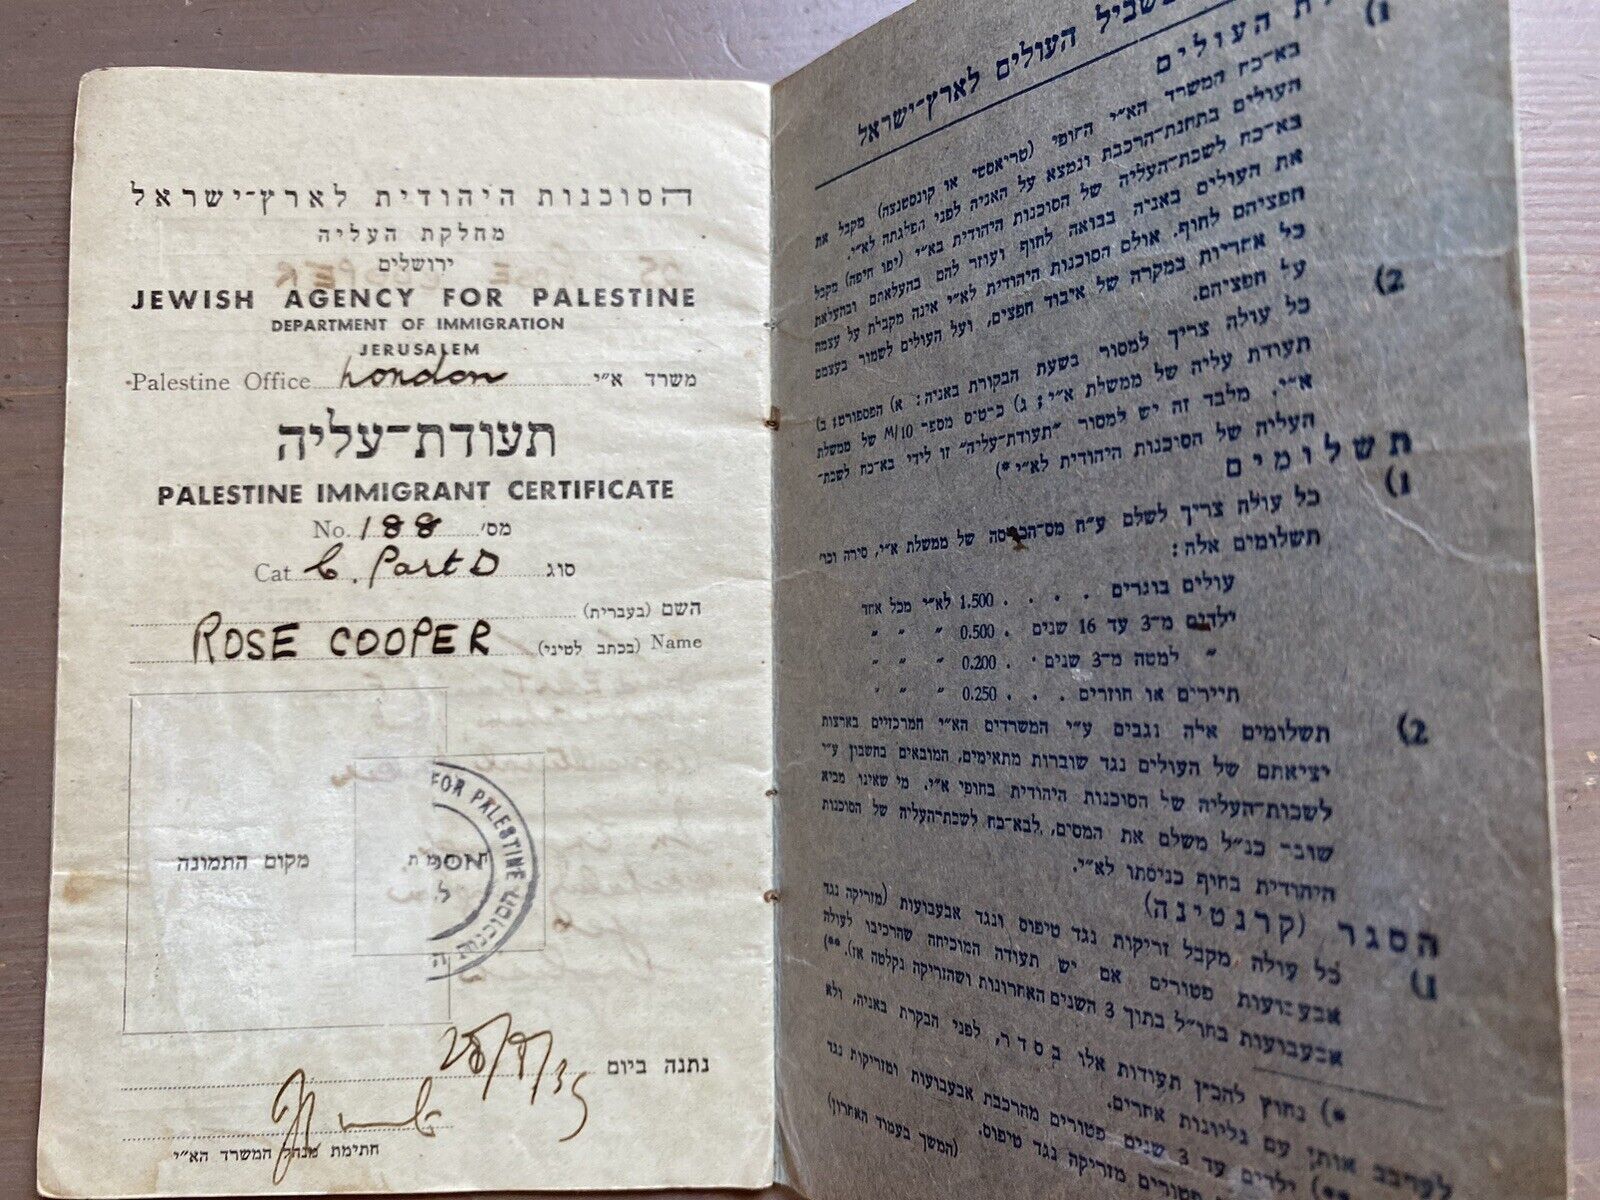 הסוכנות היהודית לארץ-ישראל
מחלקת העליה
ירושלים
JEWISH AGENCY FOR PALESTINE
DEPARTMENT OF IMMIGRATION
JERUSALEM
Palestine Office London משרד א״י
תעודת-עליה
PALESTINE IMMIGRANT CERTIFICATE
No. 188 מס׳
Cat C. Part D סוג
השם (בעברית)
ROSE COOPER (בכתב לטיני) Name
מקום התמונה
FOR PALESTINE
הסוכנות
נתנה ביום 28/8/35
חתימת מנהל המשרד הא״י
בשביל העולים לארץ-ישראל
העולים
1) בא-כח המשרד הא״י החופי (טריאסט או קונסטנצה) מקבל את
העולים בתחנת-הרכבת ונמצא על האניה לפני הפלגתה לא״י.
בא-כח לשכת-העליה של הסוכנות היהודית בא״י (יפו חיפה) מקבל
את העולים באניה בבואה לחוף ועוזר להם בהעלאתם ובהעלאת
חפציהם לחוף. אולם הסוכנות היהודית לא״י אינה מקבלת על עצמה
כל אחריות במקרה של איבוד חפצים, ועל העולים לשמור בעצמם
על חפציהם.
2) כל עולה צריך למסור בשעת הבקורת באניה: א) הפספורט; ב)
תעודת עליה של ממשלת א״י; ג) כרטיס מספר M/10 של ממשלת
א״י. מלבד זה יש למסור ״תעודת-עליה״ זו לידי בא-כח לשכת-
העליה של הסוכנות היהודית לא״י *)
תשלומים
1) כל עולה צריך לשלם ע״ח מס-הכניסה של ממשלת א״י, סירה וכו׳
תשלומים אלה:
עולים בוגרים . . . . 1.500 לא״י מכל אחד
ילדים מ-3 עד 16 שנים . 0.500 ״ ״ ״
״ למטה מ-3 שנים . 0.200 ״ ״ ״
תיירים או חוזרים . . . 0.250 ״ ״ ״
2) תשלומים אלה נגבים ע״י המשרדים הא״י המרכזיים בארצות
יציאתם של העולים נגד שוברות מתאימים, המובאים בחשבון ע״י
לשכות-העליה של הסוכנות היהודית בחופי א״י. מי שאינו מביא
שובר כנ״ל משלם את המסים, לבא-כח לשכת-העליה של הסוכנות
היהודית בחוף כניסתו לא״י.
הסגר (קרנטינה)
1) כל עולה מקבל זריקות נגד טיפוס ונגד אבעבועות (מזריקה נגד
אבעבועות פטורים אם יש תעודה המוכיחה שהרכיבו לעולה
אבעבועות בחו״ל בתוך 3 השנים האחרונות ושהזריקה נקלטה אז). **)
*) נחוץ להכין תעודות אלו בסדר, לפני הבקרת באניה, ולא
לערבב אותן עם גליונות אחרים.
**) ילדים עד 3 שנים פטורים מהרכבת אבעבועות ומזריקות נגד
פטורים מזריקה נגד טיפוס. (המשך בעמוד האחרון)